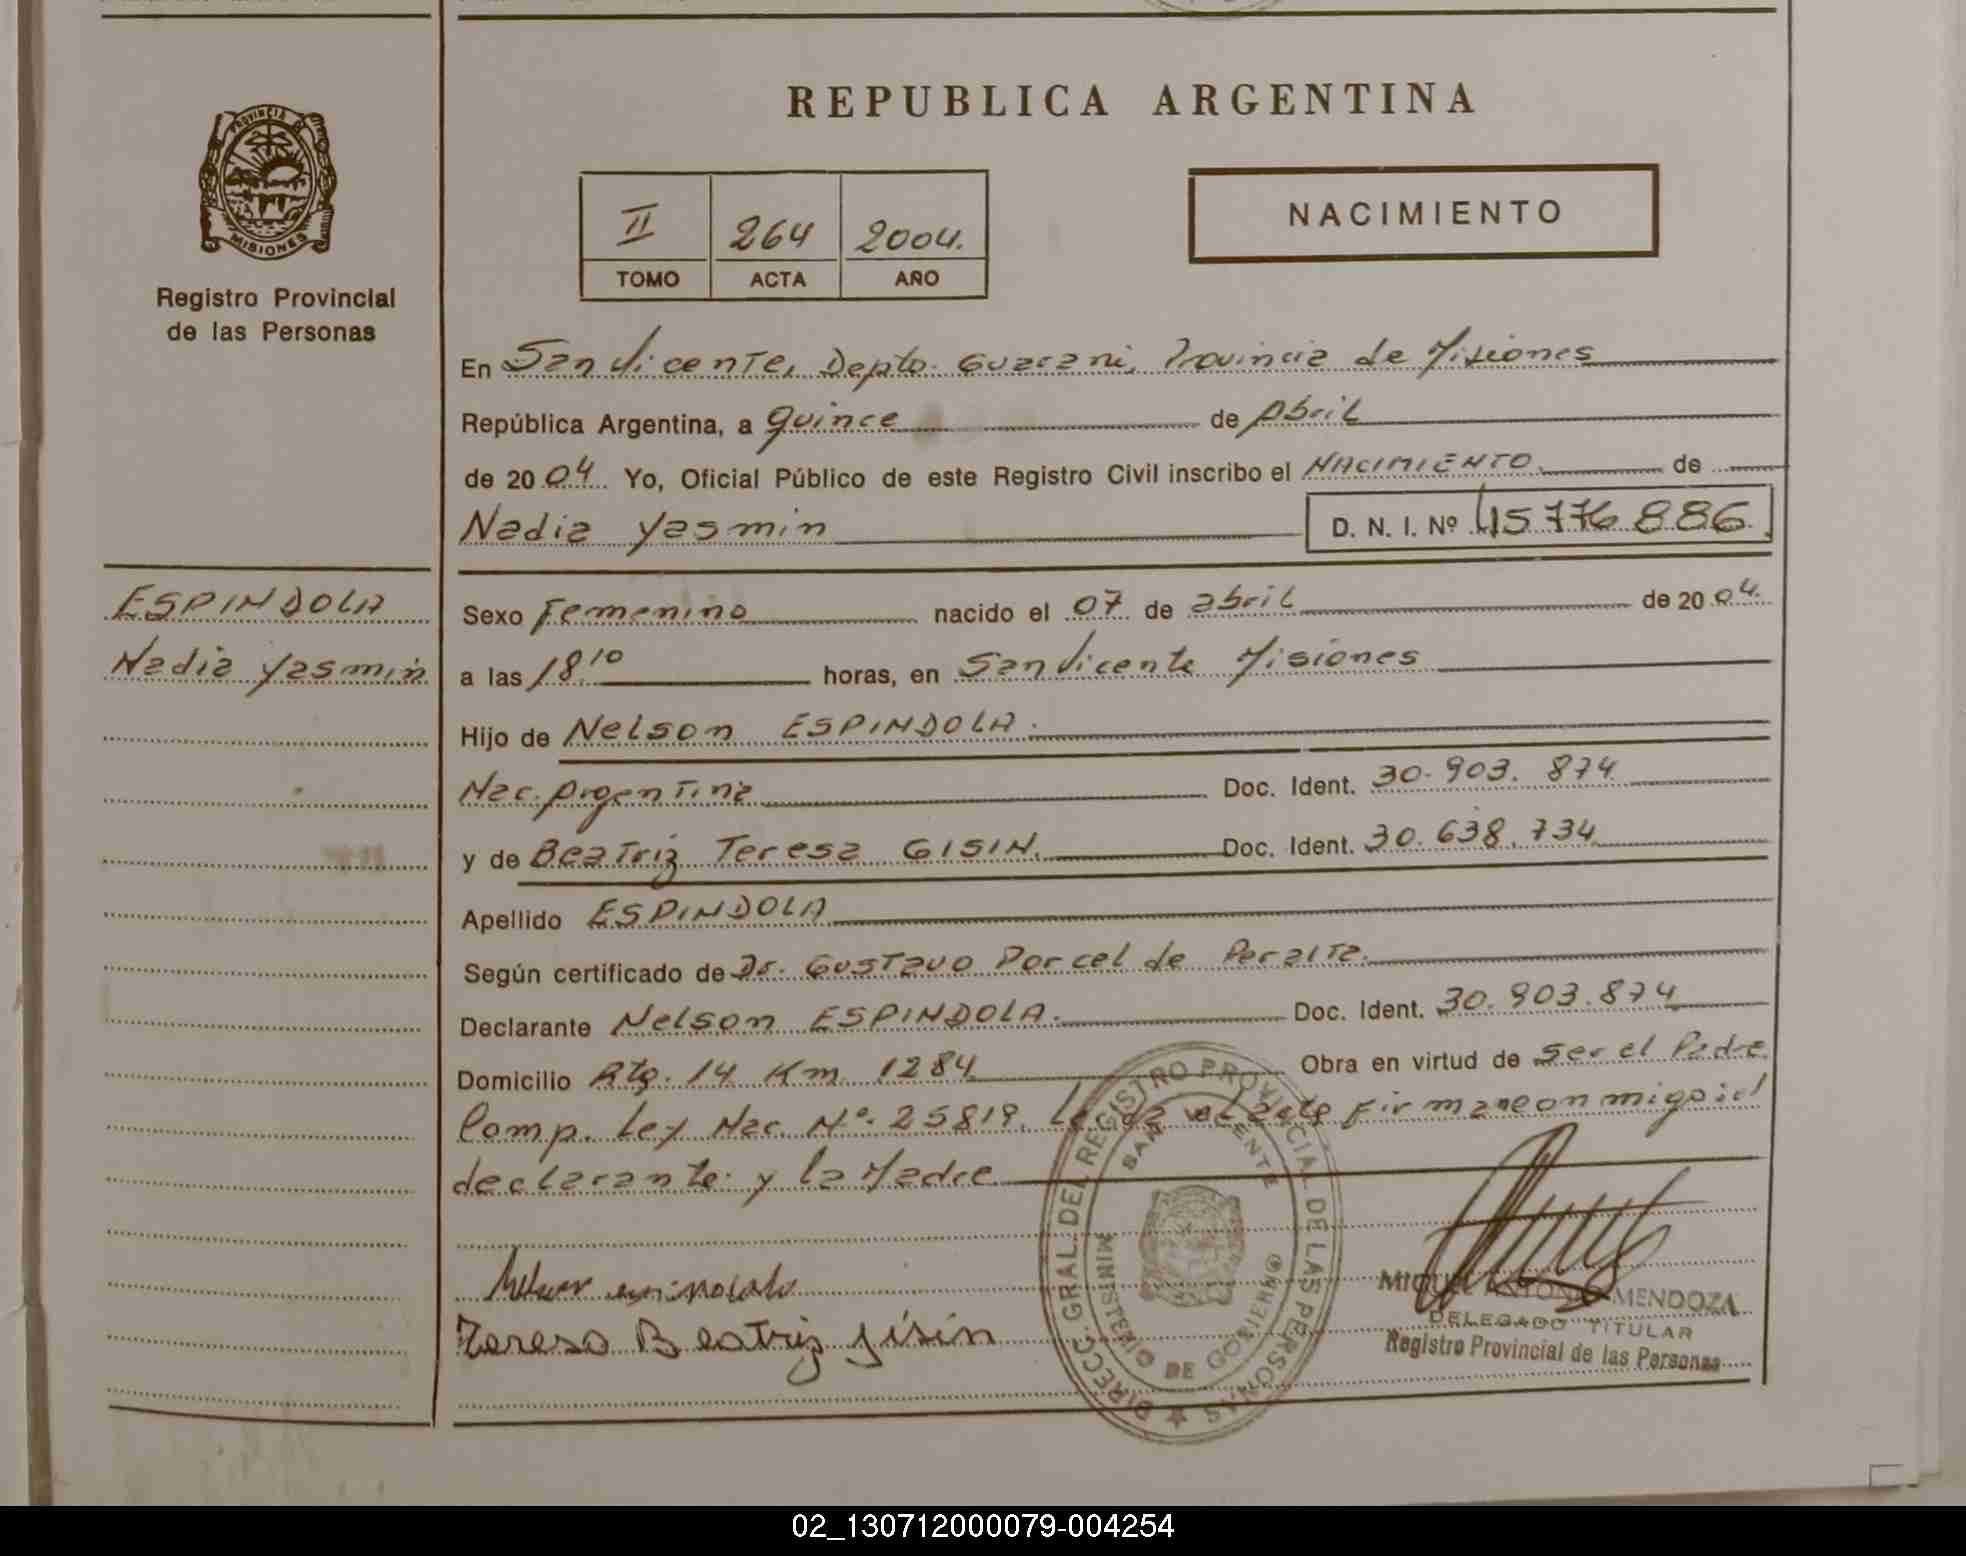 REPUBLICA ARGENTINA
PROVINCIA DE
MISIONES
Registro Provincial
de las Personas
II 264 2004.
TOMO ACTA AÑO
NACIMIENTO
En San Vicente, Depto. Guarani, Provincia de Misiones
República Argentina, a quince de Abril
de 2004 Yo, Oficial Público de este Registro Civil inscribo el NACIMIENTO de
Nadia Yasmin D. N. I. Nº 45776886
ESPINDOLA
Nadia Yasmin
Sexo Femenino nacido el 07 de abril de 2004.
a las 18.10 horas, en San Vicente Misiones
Hijo de Nelson ESPINDOLA.
Nac. Argentina Doc. Ident. 30.903.874
y de Beatriz Teresa GISIN. Doc. Ident. 30.638.734
Apellido ESPINDOLA
Según certificado de Dr. Gustavo Porcel de Peralta.
Declarante Nelson ESPINDOLA. Doc. Ident. 30.903.874
Domicilio Rta. 14 Km 1284 Obra en virtud de ser el Padre
Comp. Ley Nac. Nº. 25819. Leida el acta firman conmigo el
declarante y la Madre
Teresa Beatriz Jisin
DIRECC. GRAL. DEL REGISTRO PROVINCIAL DE LAS PERSONAS
SAN VICENTE
MINISTERIO DE GOBIERNO
MIGUEL ANTONIO MENDOZA
DELEGADO TITULAR
Registro Provincial de las Personas
02_130712000079-004254